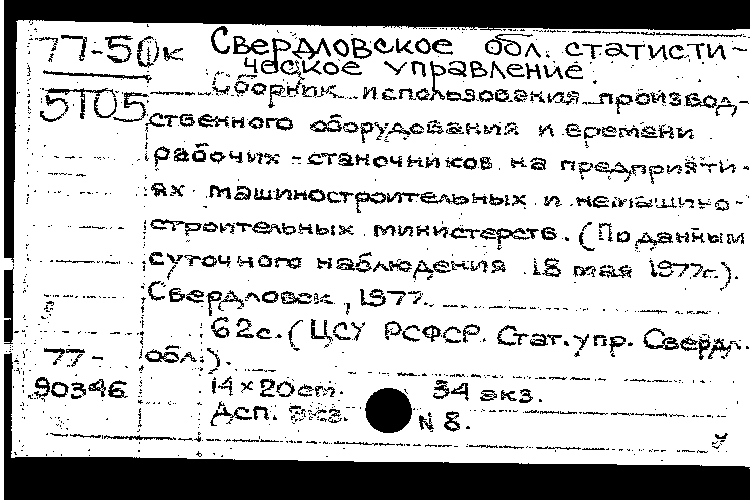 77-50к Свердловское обл. статисти-
ческое управление.
5105 Сборник использования производ-
ственного оборудования и времени
рабочих-станочников на предприяти-
ях машиностроительных и немашино-
строительных министерств. (По данным
суточного наблюдения 18 мая 1977г.).
Свердловск, 1977.
62с. (ЦСУ РСФСР. Стат. упр. Свердл.
77- обл.).
90346 14×20см. 34 экз.
Дсп. экз. N 8.